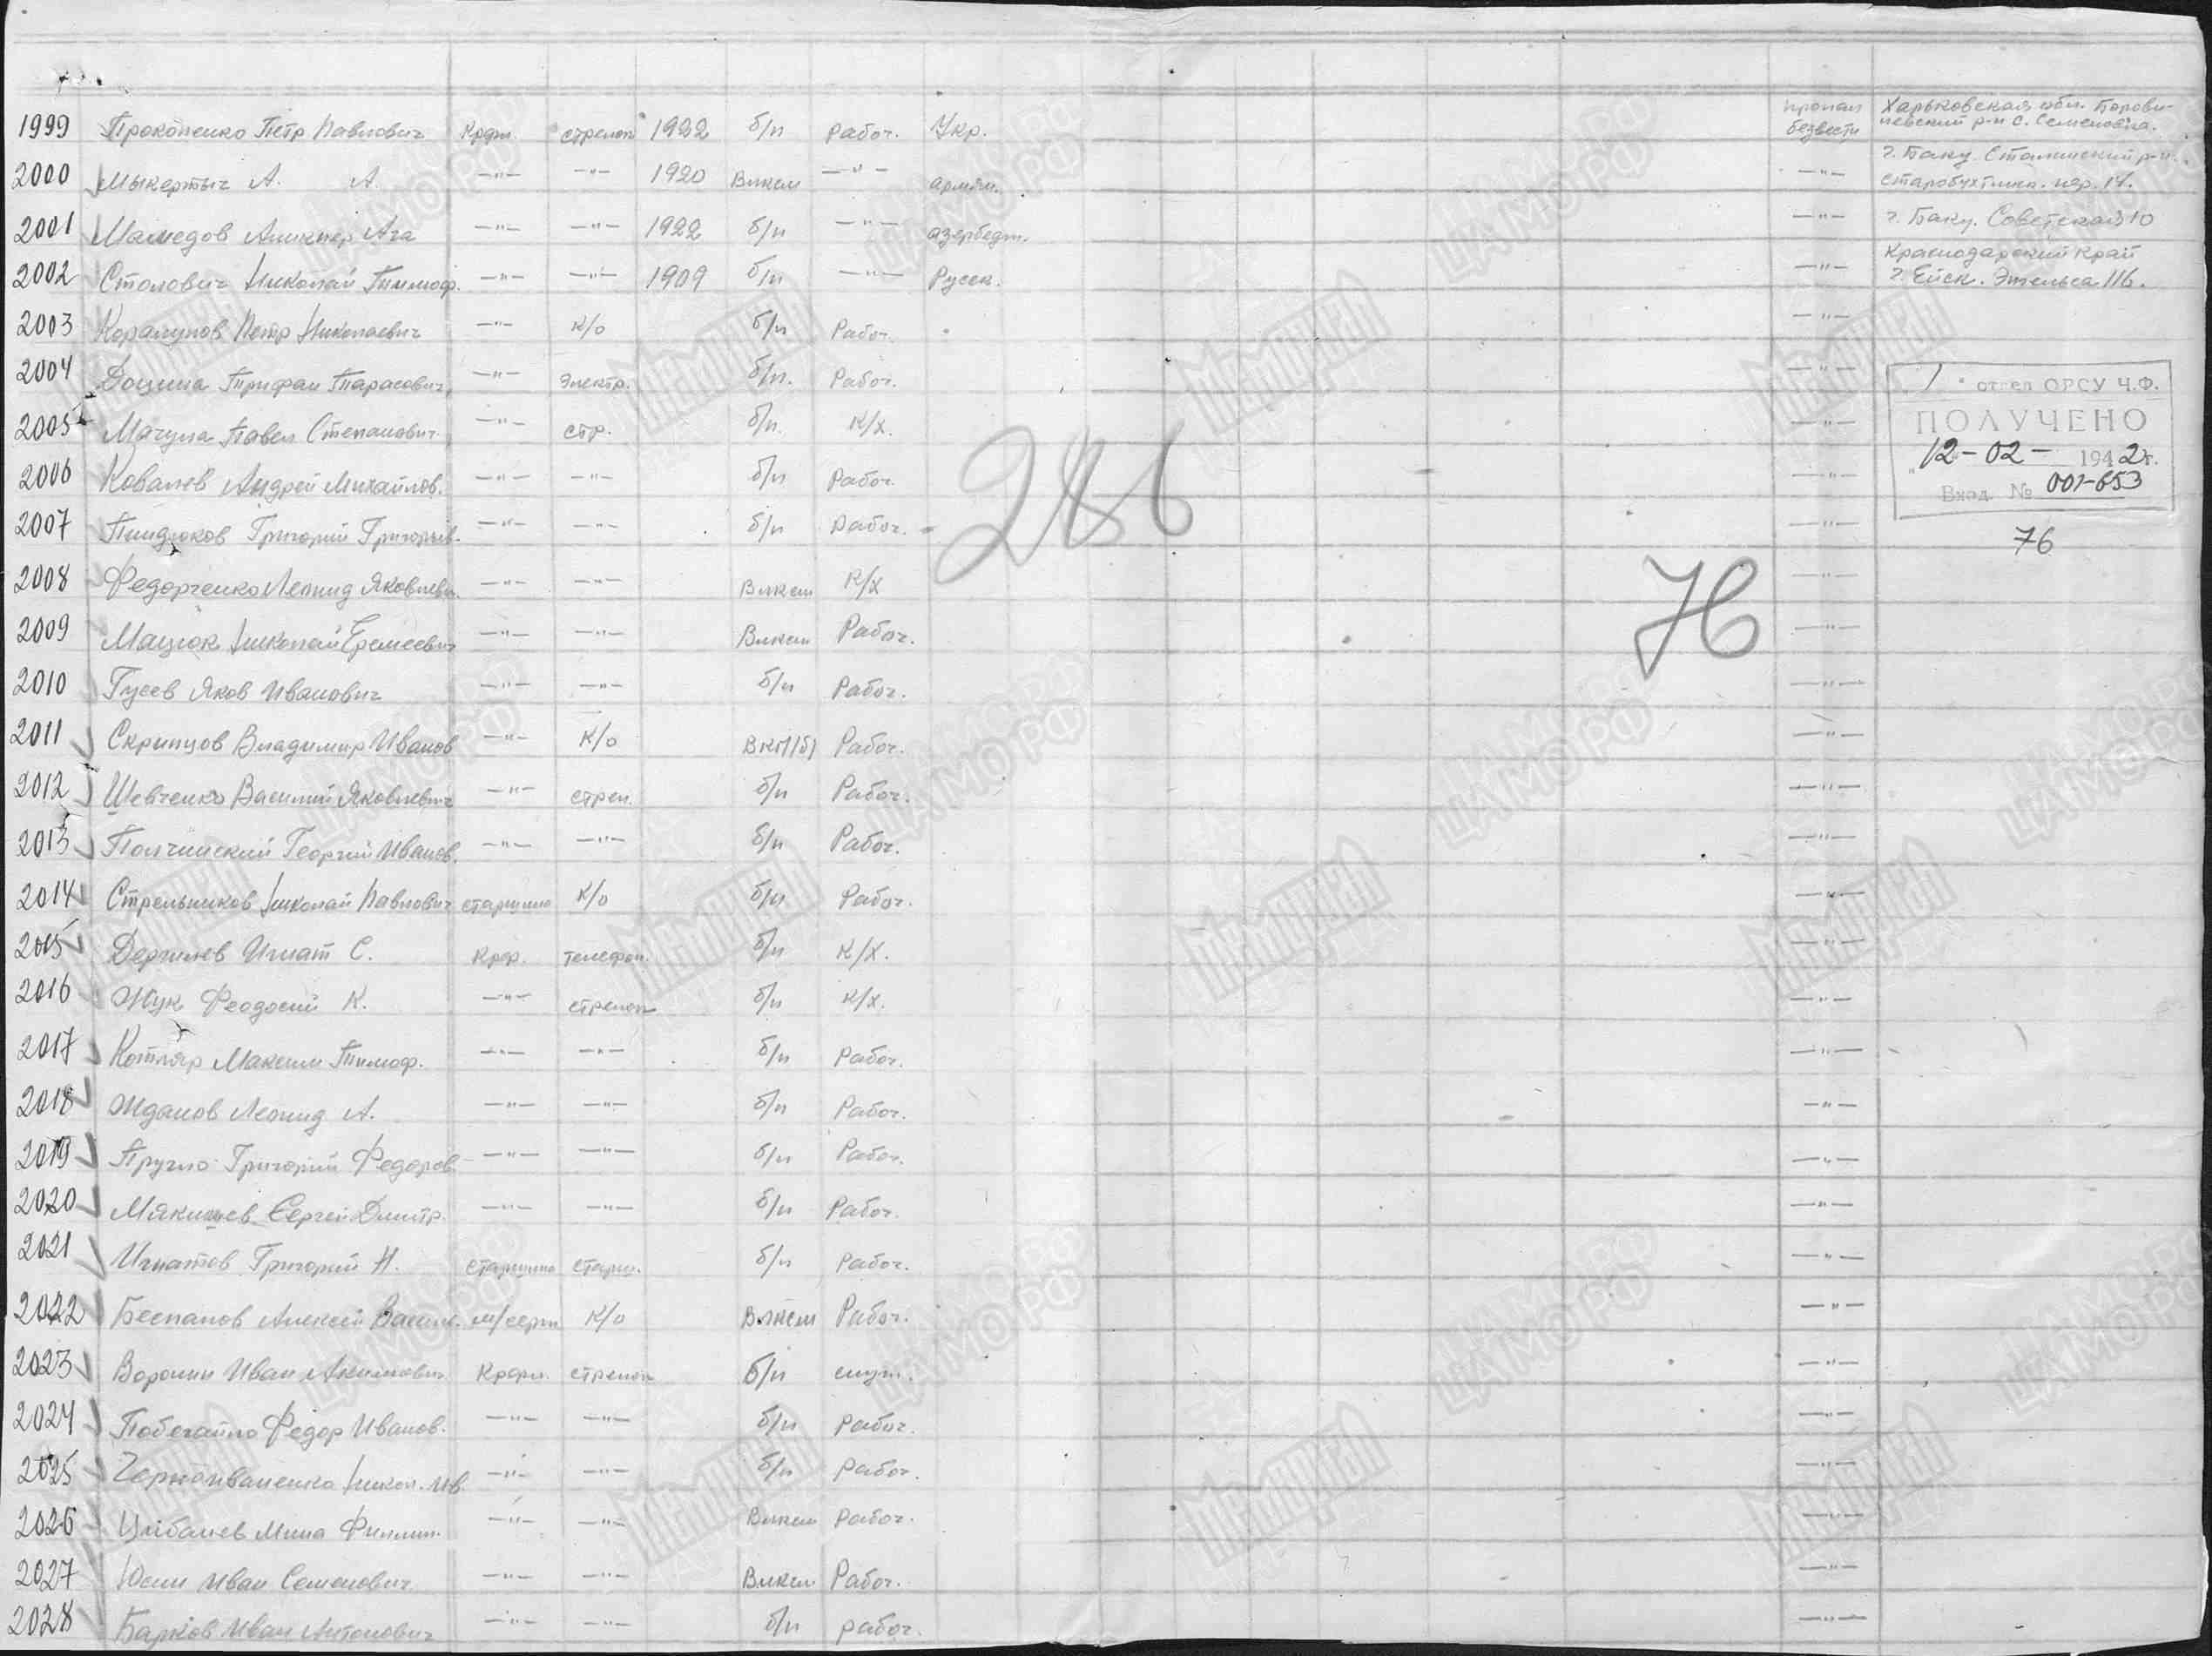 1999 Прокопенко Петр Павлович Крфт. стрелок 1922 б/п рабоч. Укр. пропал безвести Харьковская обл. Борови-
невский р-н с. Семеновка.
2000 Мыкертыч А. А. —"— —"— 1920 Влксм —"— армян. —"— г. Баку. Сталинский р-н.
пер. 14.
2001 Мамедов Аликпер Ага —"— —"— 1922 б/п —"— азербедж. —"— г. Баку. Советская 10
2002 Столович Николай Тимоф. —"— —"— 1909 б/п —"— Русск. —"— Краснодарский край
г. Ейск. Энгельса 116.
2003 Петр Николаевич —"— к/о б/п Рабоч. —"—
2004 Доцина Трифан Тарасович —"— электр. б/п. Рабоч. —"—
2005 Мачула Павел Степанович —"— стр. б/п. К/х. —"—
2006 Ковалев Андрей Михайлов. —"— —"— б/п Рабоч. —"—
2007 Григорий Григорьев. —"— —"— б/п Рабоч. —"—
2008 Федорченко Леонид Яковлевич —"— —"— Влксм К/х —"—
2009 Мацюк Николай Еремеевич —"— —"— Влксм Рабоч. —"—
2010 Гусев Яков Иванович —"— —"— б/п Рабоч. —"—
2011 Скрипцов Владимир Иванов —"— К/о ВКП(б) Рабоч. —"—
2012 Шевченко Василий Яковлевич —"— стрел. б/п Рабоч. —"—
2013 Полчинский Георгий Иванов. —"— —"— б/п Рабоч. —"—
2014 Стрельников Николай Павлович старшина К/о б/п Рабоч. —"—
2015 Игнат С. Крф. телефон. б/п К/х. —"—
2016 Жук Феодосий К. —"— стрелок б/п К/х. —"—
2017 Котляр Максим Тимоф. —"— —"— б/п Рабоч. —"—
2018 Жданов Леонид А. —"— —"— б/п Рабоч. —"—
2019 Пругло Григорий Федоров. —"— —"— б/п Рабоч. —"—
2020 Мякишев Сергей Дмитр. —"— —"— б/п Рабоч. —"—
2021 Игнатов Григорий Н. старшина старш. б/п Рабоч. —"—
2022 Беспалов Алексей Васил. м/серж К/о Влксм Рабоч. —"—
2023 Воронин Иван Акимович Крфт. стрелок б/п служ. —"—
2024 Побегайло Федор Иванов. —"— —"— б/п Рабоч. —"—
2025 Черноиваненко Никол. Ив. —"— —"— б/п Рабоч. —"—
2026 Цибанев Мина Филип. —"— —"— Влксм Рабоч. —"—
2027 Юсин Иван Семенович —"— —"— Влксм Рабоч. —"—
2028 Барков Иван Антонович —"— —"— б/п рабоч. —"—
1 отдел ОРСУ Ч.Ф.
ПОЛУЧЕНО
"12-02- 1942г.
Вход. № 001-653
76
286
76
МЕМОРИАЛ
ЦАМО РФ